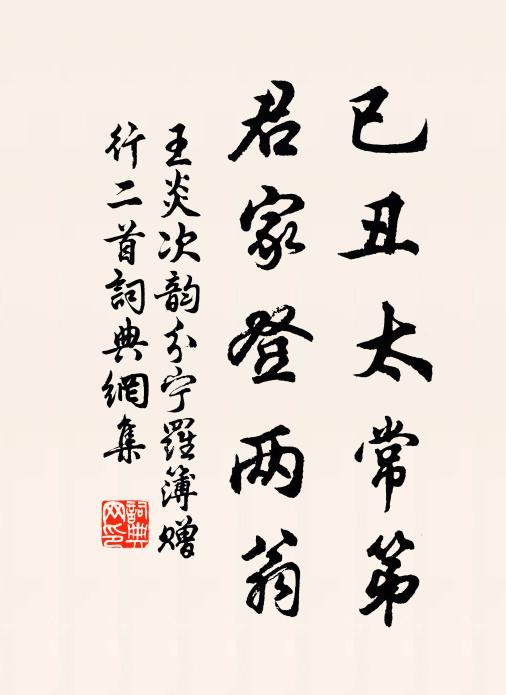 已丑太常第
君家登两翁
王炎次韵分宁羅簿赠
行二首詞典網集
詞典网印